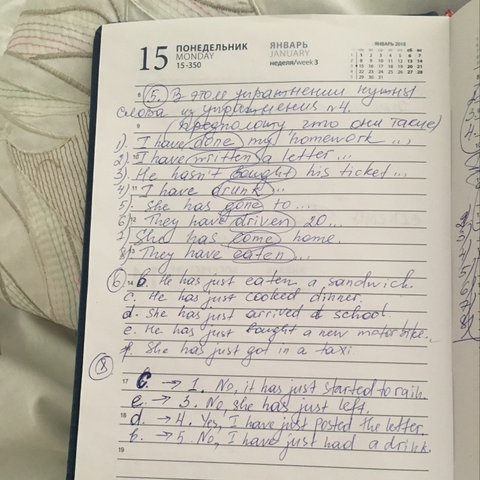 15 ПОНЕДЕЛЬНИК
MONDAY
15-350
ЯНВАРЬ
JANUARY
неделя/week 3
ЯНВАРЬ 2018
5. В этом упражнении нужны
слова из упражнения №4.
(предположу что они такие)
1). I have done my homework ...
2) I have written a letter ...
3). He hasn't bought his ticket ...
4) I have drunk ...
5). She has gone to ...
6) They have driven 20 ...
7) She has come home.
8) They have eaten ...
6 b. He has just eaten a sandwich.
c. He has just cooked dinner.
d. She has just arrived at school.
e. He has just bought a new motorbike.
f. She has just got in a taxi
8
c. → 1. No, it has just started to rain.
e. → 3. No, she has just left.
d. → 4. Yes, I have just posted the letter.
b. → 5. No, I have just had a drink.